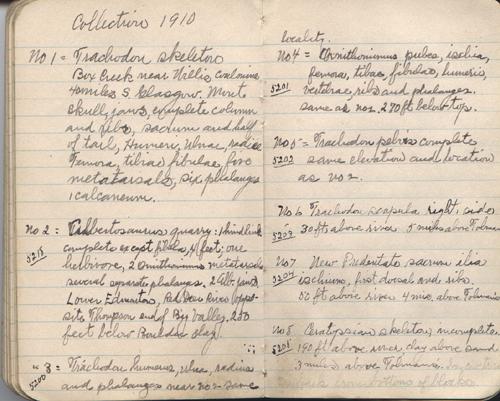 Collection 1910
No 1 = Trachodon skeleton
Box Creek near Willis coal mine
40 miles S Glasgow. Most
skull, jaws, complete column
and ribs, sacrum and half
of tail, Humeri, Ulnae, radii
Femora, tibiae fibulae, five
metatarsals, six phalanges
1 calcaneum.
No 2 = Albertosaurus quarry: 1 hind limb
5218 complete except fibula, 1/2 feet; one
herbivore, 2 Ornithomimus metatarsals
several separate phalanges, 2 Alb. jaws
Lower Edmonton, Red Deer River oppo-
site Thompson end of Big Valley. 250
feet below Boulder clay.
" 3 = Trachodon humerus, ulna, radius
5200 and phalanges near no 2 same
locality.
No 4 = Ornithomimus pubes, ischia,
femora, tibae, fibulae, humeri,
5201 vertebrae, ribs and phalanges.
same as no 2. 270 ft below top.
No 5 = Trachodon pelvis complete
5202 same elevation and location
as no 2.
No 6 Trachodon scapula, right, side
30 ft above river. 5 miles above Tolman
No 7 New Predentate sacrum ilia
5204 ischium, first dorsal and ribs.
50 ft above river 4 mi. above Tolmans
No 8. Ceratopsian skeleton, incomplete.
5205 190 ft above river clay above sand
3 miles above Tolmans.
bottoms of blocks